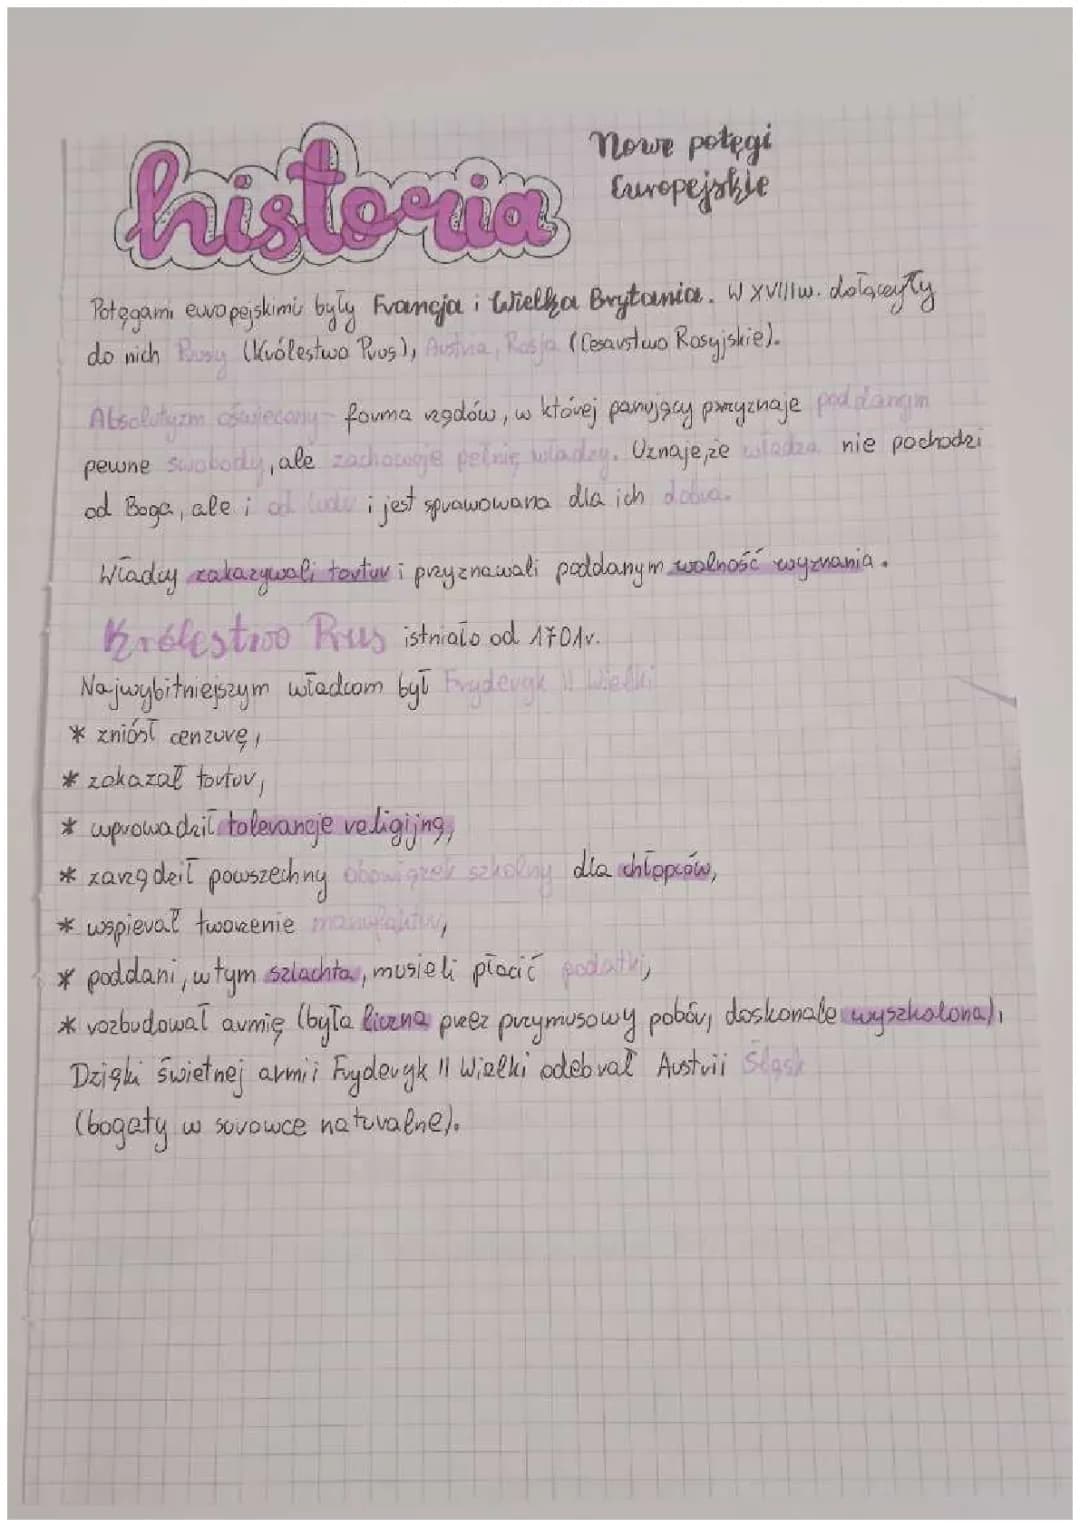 historia
Nowe potęgi
Europejskie
Potęgami europejskimi były Francja i Wielka Brytania. W XVIII w. dołączyły
do nich Prusy (Królestwo Prus), Austria, Rosja (Cesarstwo Rosyjskie).
Absolutyzm oświecony - forma rządów, w której panujący przyznaje poddanym
pewne swobody, ale zachowuje pełnię władzy. Uznaje, że władza nie pochodzi
od Boga, ale i od ludu i jest sprawowana dla ich dobra.
Władcy zakazywali tortur i przyznawali poddanym wolność wyznania.
Królestwo Prus istniało od 1701r.
Najwybitniejszym władcom był Fryderyk II Wielki
* zniósł cenzurę,
* zakazał tortur,
* wprowadził tolerancje religijną,
* zarządził powszechny obowiązek szkolny dla chłopców,
* wspierał tworzenie manufaktur,
* poddani, w tym szlachta, musieli płacić podatki,
* rozbudował armię (była liczna przez przymusowy pobór, doskonale wyszkolona),
Dzięki świetnej armii Fryderyk II Wielki odebrał Austrii Śląsk
(bogaty w surowce naturalne).